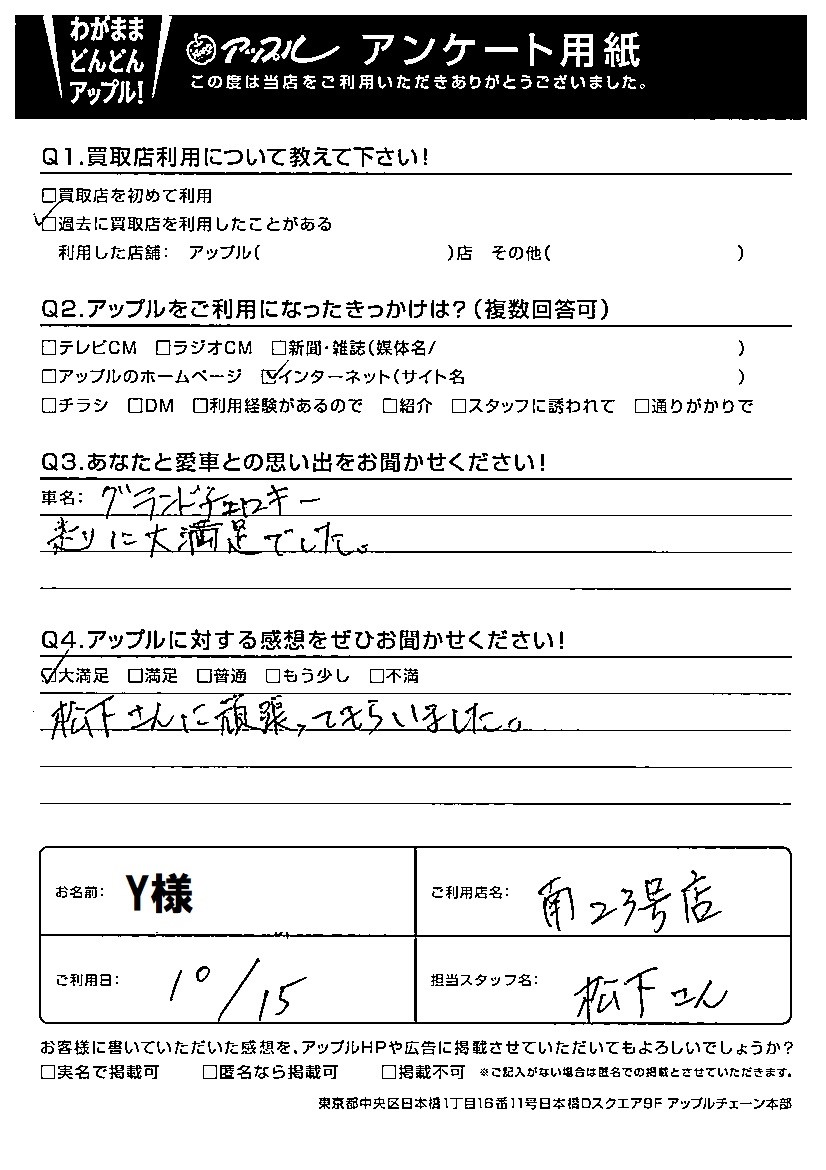 わがまま
どんどん
アップル!
アップル アンケート用紙
この度は当店をご利用いただきありがとうございました。
Q1.買取店利用について教えて下さい!
□買取店を初めて利用
☑過去に買取店を利用したことがある
利用した店舗: アップル( )店 その他( )
Q2.アップルをご利用になったきっかけは?(複数回答可)
□テレビCM □ラジオCM □新聞・雑誌(媒体名/ )
□アップルのホームページ ☑インターネット(サイト名 )
□チラシ □DM □利用経験があるので □紹介 □スタッフに誘われて □通りがかりで
Q3.あなたと愛車との思い出をお聞かせください!
車名: グランドチェロキー
走りに大満足でした。
Q4.アップルに対する感想をぜひお聞かせください!
☑大満足 □満足 □普通 □もう少し □不満
松下さんに頑張ってもらいました。
お名前: Y様
ご利用店名: 南23号店
ご利用日: 10/15
担当スタッフ名: 松下さん
お客様に書いていただいた感想を、アップルHPや広告に掲載させていただいてもよろしいでしょうか?
□実名で掲載可 □匿名なら掲載可 □掲載不可 ※ご記入がない場合は匿名での掲載とさせていただきます。
東京都中央区日本橋1丁目16番11号日本橋Dスクエア9F アップルチェーン本部